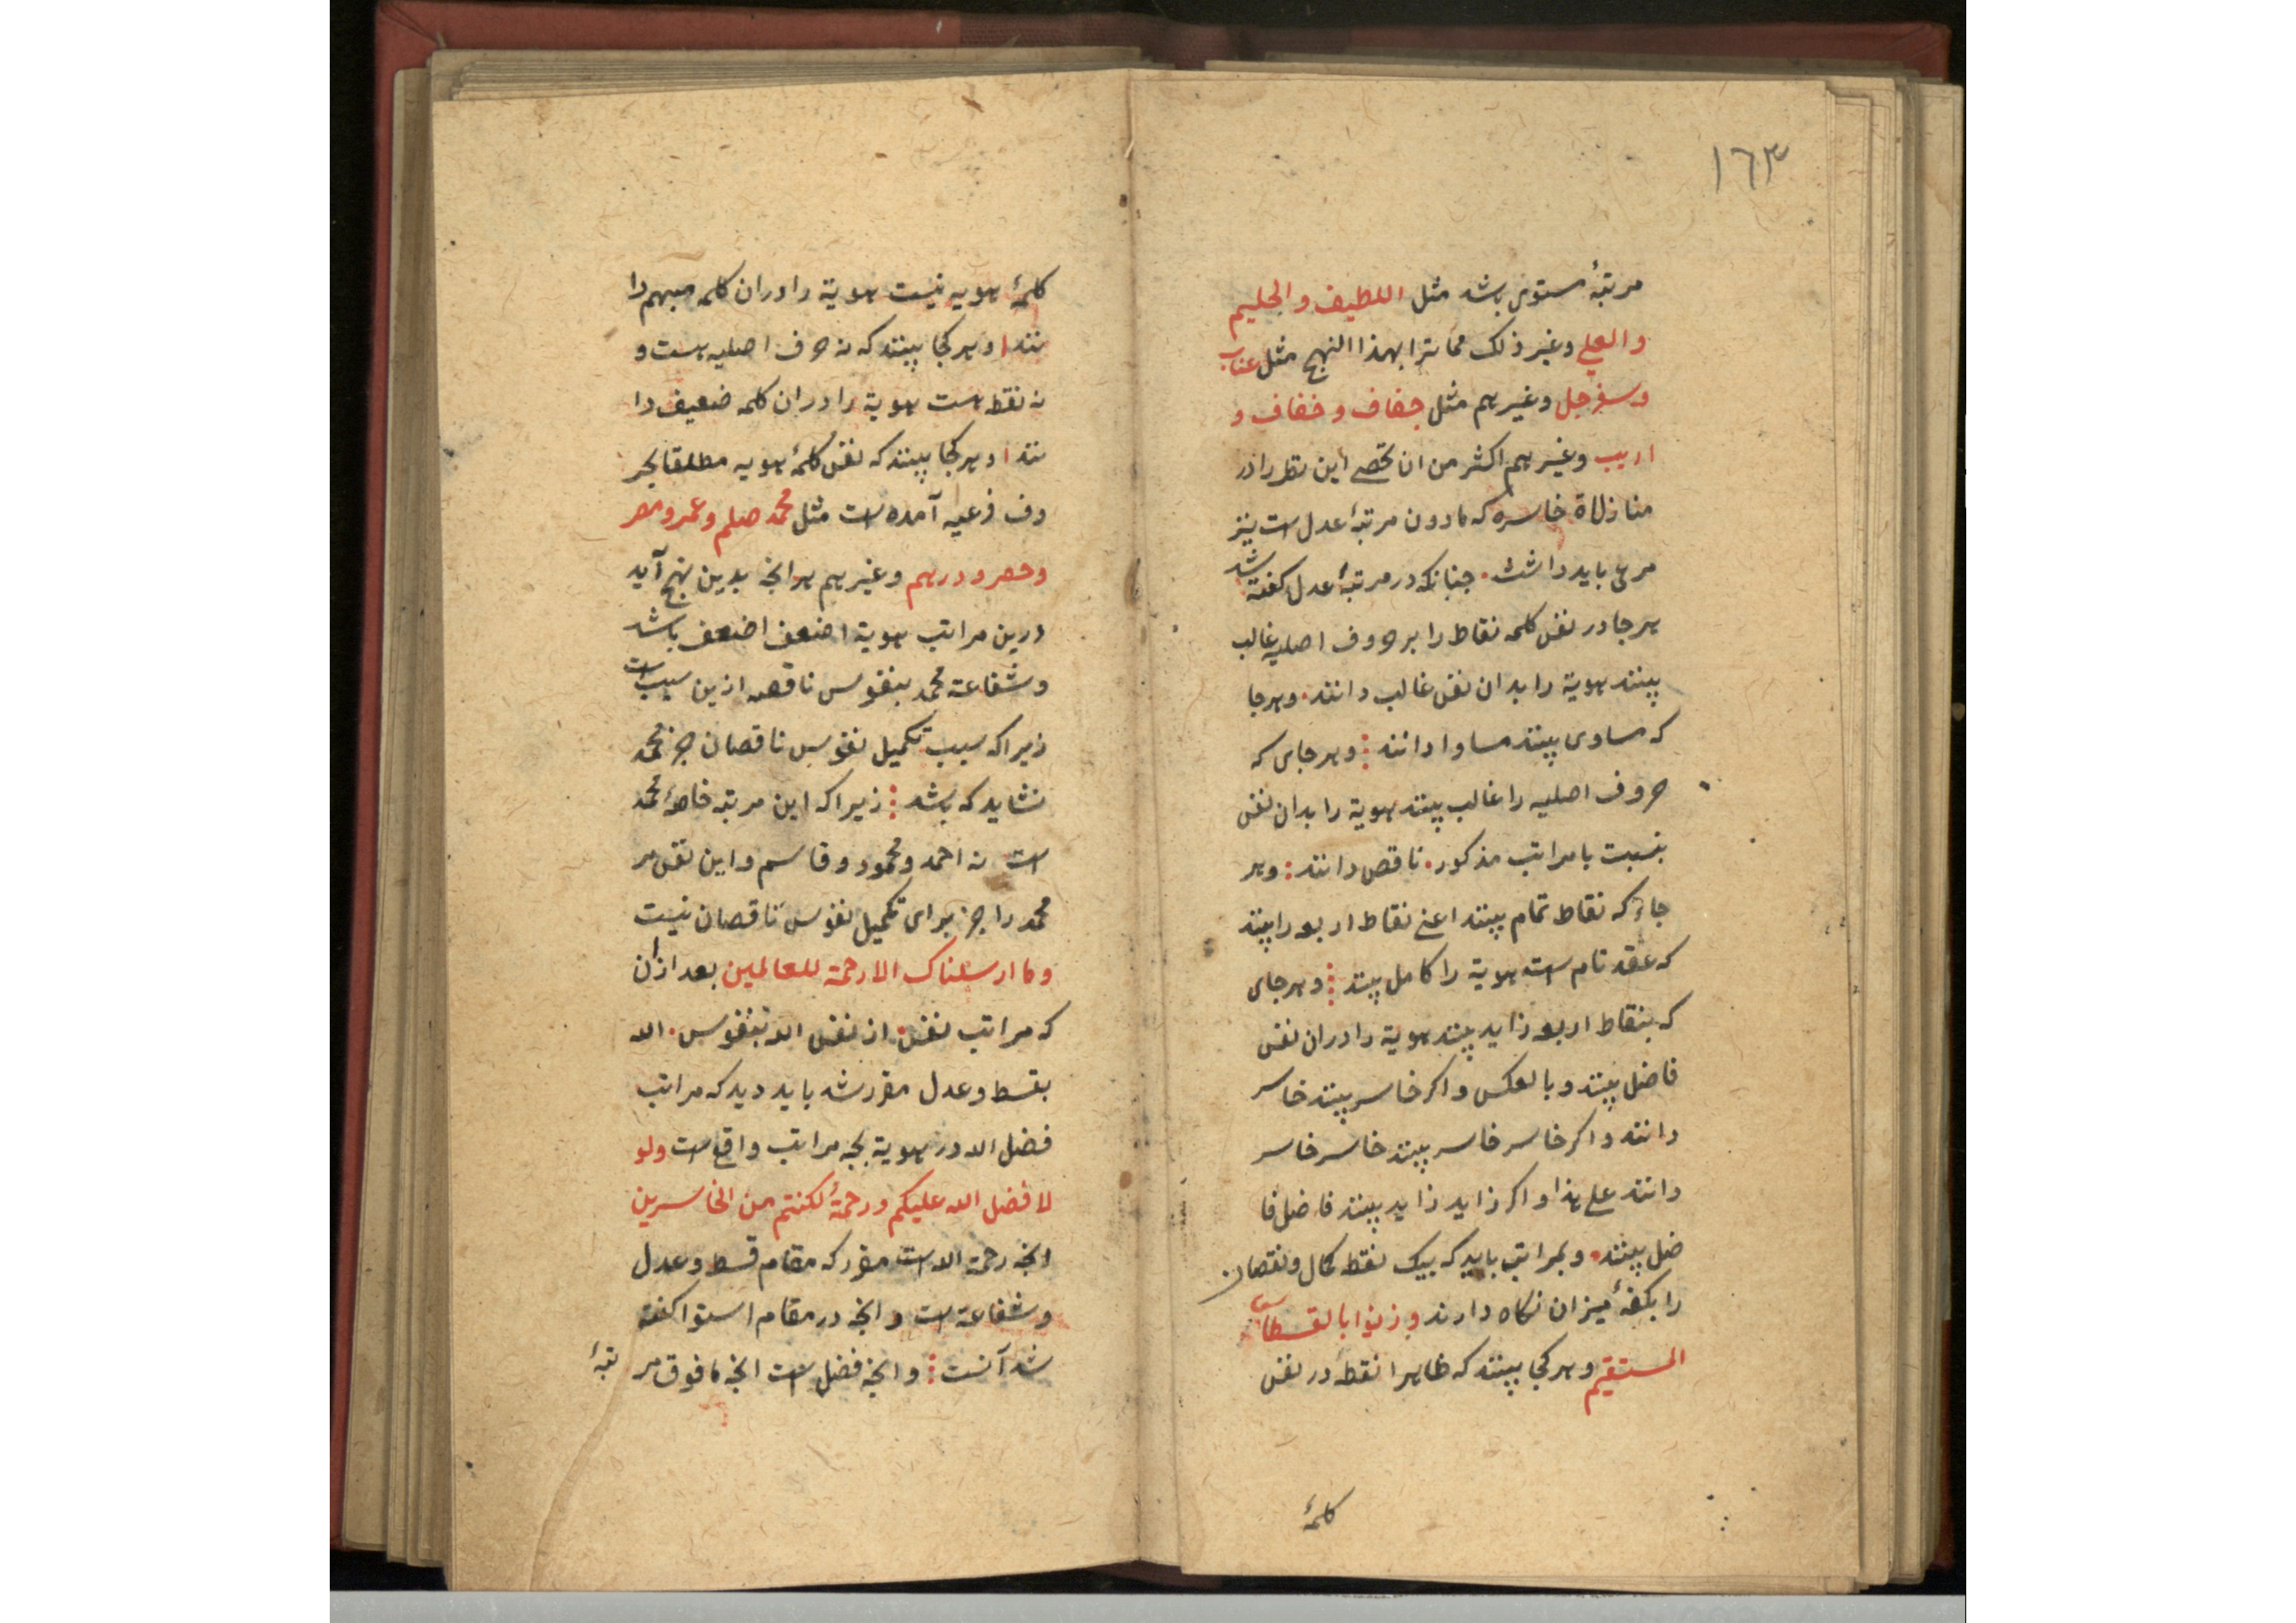 ١٦٣
مرتبهٔ مستوی باشد مثل اللطیف و الحلیم
و العلی و غیر ذلک مما ترا بهذا النهج مثل عناب
و سفرجل و غیرهم مثل جفاف و خفاف و
اریب و غیرهم اکثر من ان تحصی این نظر را در
منازلاة خاسره که مادون مرتبهٔ عدل است نیز
مرعی باید داشت. چنانکه در مرتبهٔ عدل کفته شد
هر جا در نفس کلمه نقاط را بر حروف اصلیه غالب
بینند هویة را بدان نفس غالب دانند. و هر جا
که مساوی بینند مساوا دانند و هر جای که
حروف اصلیه را غالب بینند هویة را بدان نفس
بنسبت با مراتب مذکور. ناقص دانند و هر
جاء که نقاط تمام بینند اعنی نقاط اربعه را بینند
که عقد تام است هویة را کامل بینند و هر جای
که بنقاط اربعه زاید بینند هویة را در ان نفس
فاضل بینند و بالعکس و اکر خاسر بینند خاسر
دانند و اکر خاسر خاسر بینند خاسر خاسر
دانند علی هذا و اکر زاید زاید بینند فاضل فا
ضل بینند. و بمراتب باید که بیک نقطه کمال و نقصان
را بکفهٔ میزان نکاه دارند و زنوا بالقسطاس
المستقیم و هر کجا بینند که ظاهرا نقطه در نفس
کلمهٔ
کلمهٔ هویه نیست هویة را در ان کلمه مبهم دا
نند و هر کجا بینند که نه حرف اصلیه هست و
نه نقطه هست هویة را در ان کلمه ضعیف دا
نند و هر کجا بینند که نفس کلمهٔ هویه مطلقا بحر
وف فرعیه آمده است مثل محمد صلم و عمرو مصر
و حصر و درهم و غیرهم هر انچه بدین نهج آید
درین مراتب هویة اضعف اضعف باشد
و شفاعة محمد بنفوس ناقصه ازین سبب است
زیرا که سبب تکمیل نفوس ناقصان جز محمد
نشاید که باشد زیرا که این مرتبه خاصهٔ محمد
است نه احمد و محمود و قاسم و این نقص مر
محمد را جز برای تکمیل نفوس ناقصان نیست
و ما ارسلناک الا رحمة للعالمین بعد از ان
که مراتب نفس. از نفس الله بنفوس. الله
بقسط و عدل مقرر شد باید دید که مراتب
فضل الله در هویة بچه مراتب واقع است و لو
لا فضل الله علیکم و رحمتهٔ لکنتم من الخاسرین
انچه رحمة الله است مقرر که مقام قسط و عدل
و شفاعة است و انچه در مقام استوا کفته
شد آنست و انچه فضل است انچه مافوق مر تبهٔ